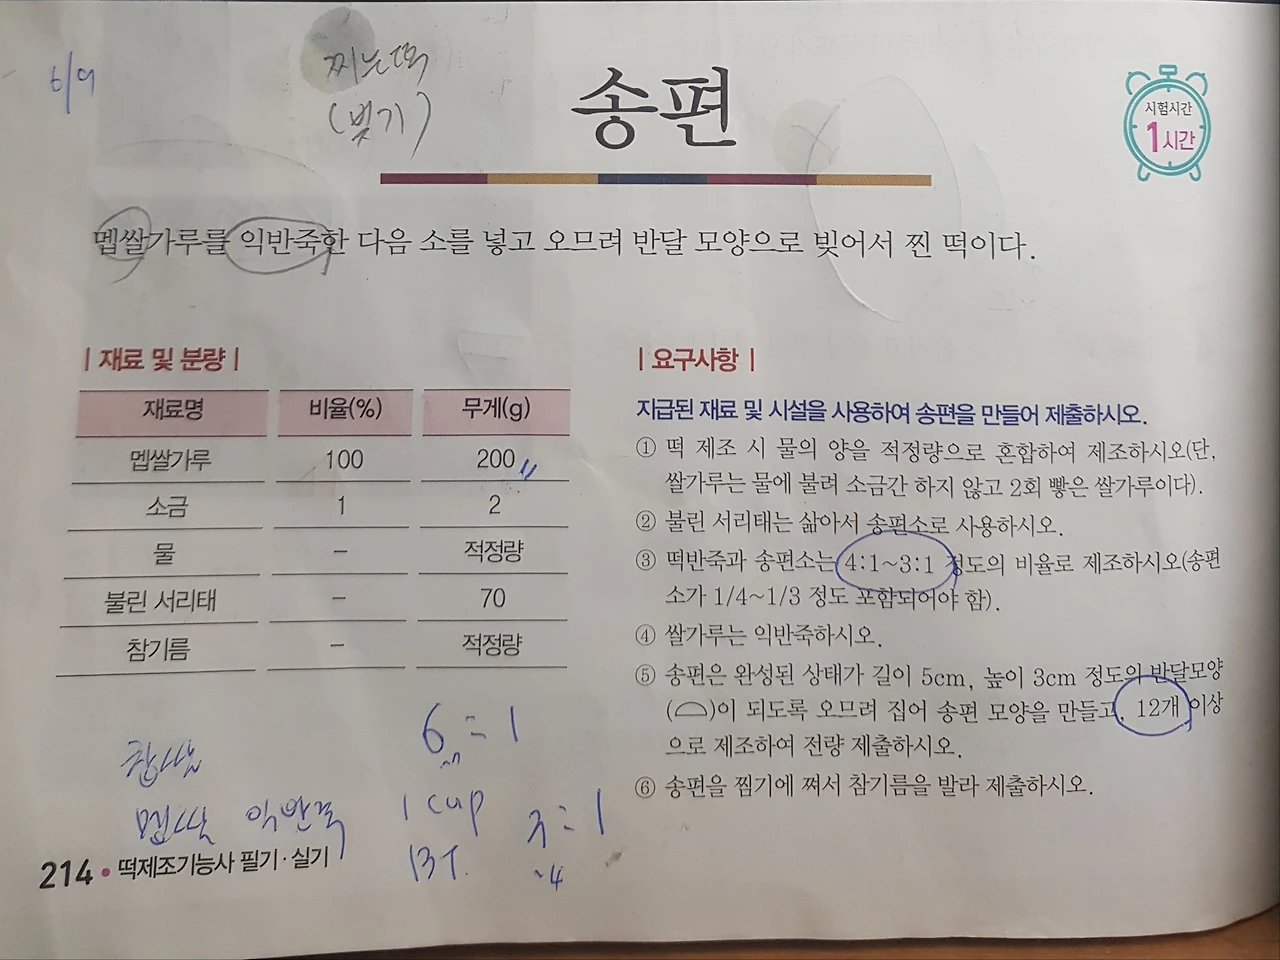 6/9
찌는떡
(빚기)
송편
시험시간
1시간
멥쌀가루를 익반죽한 다음 소를 넣고 오므려 반달 모양으로 빚어서 찐 떡이다.
| 재료 및 분량 |
재료명 비율(%) 무게(g)
멥쌀가루 100 200
소금 1 2
물 – 적정량
불린 서리태 – 70
참기름 – 적정량
| 요구사항 |
지급된 재료 및 시설을 사용하여 송편을 만들어 제출하시오.
① 떡 제조 시 물의 양을 적정량으로 혼합하여 제조하시오(단,
쌀가루는 물에 불려 소금간 하지 않고 2회 빻은 쌀가루이다).
② 불린 서리태는 삶아서 송편소로 사용하시오.
③ 떡반죽과 송편소는 4:1~3:1 정도의 비율로 제조하시오(송편
소가 1/4~1/3 정도 포함되어야 함).
④ 쌀가루는 익반죽하시오.
⑤ 송편은 완성된 상태가 길이 5cm, 높이 3cm 정도의 반달모양
( )이 되도록 오므려 집어 송편 모양을 만들고, 12개 이상
으로 제조하여 전량 제출하시오.
⑥ 송편을 찜기에 쪄서 참기름을 발라 제출하시오.
6 = 1
찹쌀
멥쌀 익반죽
1 cup
13T.
3 : 1
4
214 • 떡제조기능사 필기·실기